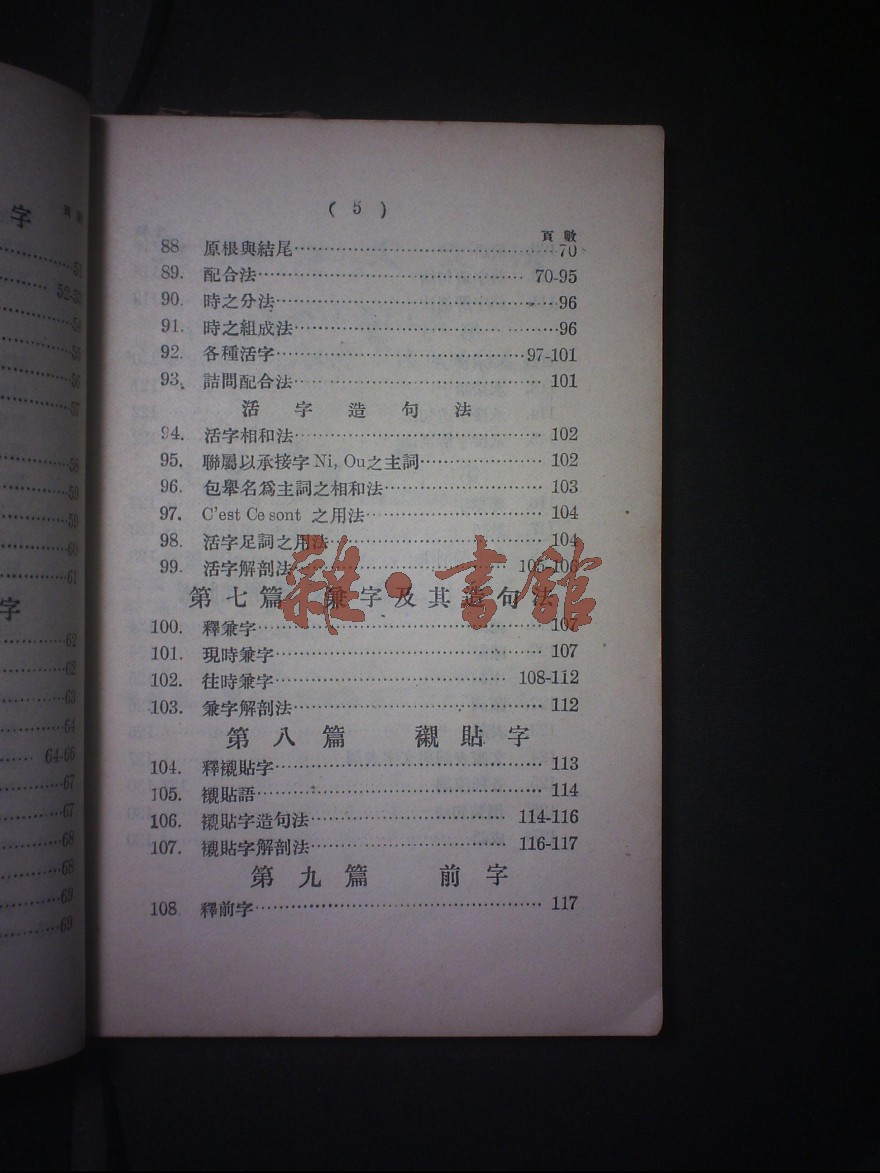 字 頁
51
52-53
54
55
56
57
58
59
59
60
61
字
62
62
63
64
64-66
67
67
68
68
69
69
( 5 )
頁數
88 原根與結尾……70
89. 配合法……70-95
90. 時之分法……96
91. 時之組成法……96
92. 各種活字……97-101
93. 詰問配合法……101
活字造句法
94. 活字相和法……102
95. 聯屬以承接字 Ni, Ou之主詞……102
96. 包舉名爲主詞之相和法……103
97. C'est Ce sont 之用法……104
98. 活字足詞之用法……104
99. 活字解剖法……105-106
第七篇 兼字及其造句法
100. 釋兼字……107
101. 現時兼字……107
102. 往時兼字……108-112
103. 兼字解剖法……112
第八篇 襯貼字
104. 釋襯貼字……113
105. 襯貼語……114
106. 襯貼字造句法……114-116
107. 襯貼字解剖法……116-117
第九篇 前字
108. 釋前字……117
雜·書館